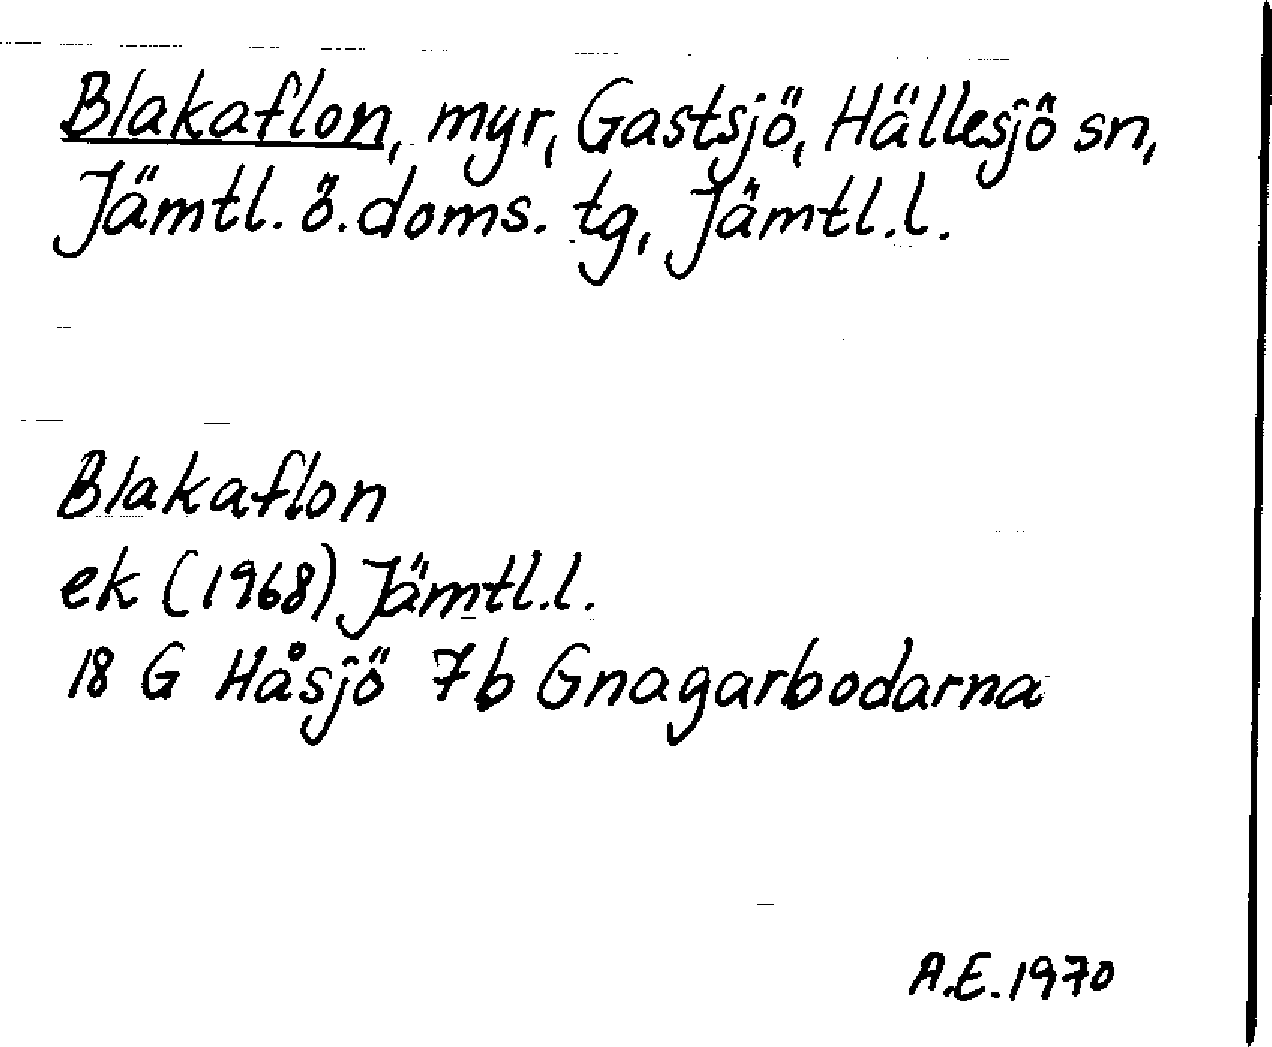 Blakaflon, myr, Gastsjö, Hällesjö sn,
Jämtl. ö. doms. tg, Jämtl.l.
Blakaflon
ek (1968) Jämtl.l.
18 G Håsjö 7b Gnagarbodarna
A.E. 1970